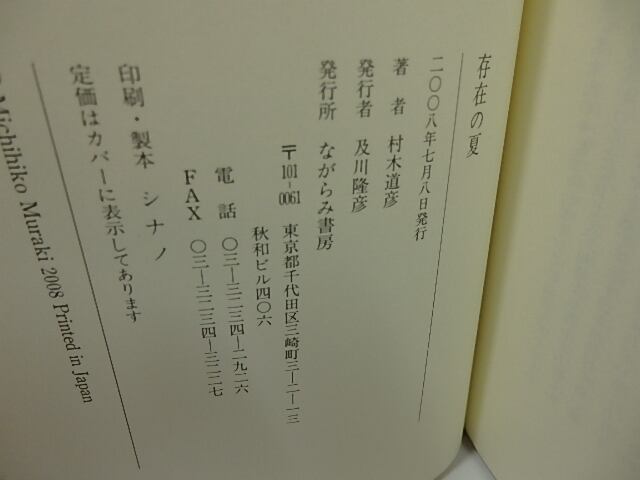 存在の夏
二〇〇八年七月八日発行
著者 村木道彦
発行者 及川隆彦
発行所 ながらみ書房
〒101-0061 東京都千代田区三崎町三―二―一三
秋和ビル四〇六
電話 〇三―三二三四―二九二六
FAX 〇三―三二三四―三二二七
印刷・製本 シナノ
定価はカバーに表示してあります
Michihiko Muraki 2008 Printed in Japan